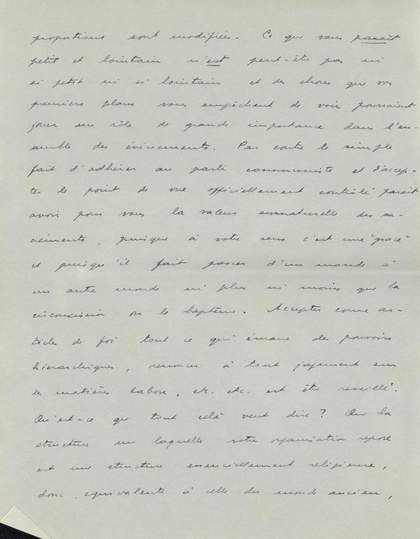 proportions sont modifiées. Ce que vous paraît
petit et lointain n'est peut-être pas ni
si petit ni si lointain et des choses que vos
premiers plans vous empêchent de voir pourraient
jouer un rôle de grande importance dans l'en-
semble des événements. Par contre le simple
fait d'adhérer au parti communiste et d'accep-
ter le point de vue officiellement contrôlé paraît
avoir pour vous la valeur surnaturelle des sa-
crements, puisque à votre sens c'est une "grâce"
et puisqu'il fait passer d'un monde à
un autre monde ni plus ni moins que la
circoncision ou le baptême. Accepter comme ar-
ticle de foi tout ce qui émane des pouvoirs
hiérarchiques, renoncer à tout jugement sur
les matières tabore, etc. etc. est être réveillé.
Qu'est-ce que tout celà veut dire? Que la
structure sur laquelle votre organisation repose
est une structure essentiellement religieuse,
donc, equivalente à celle du monde ancien,